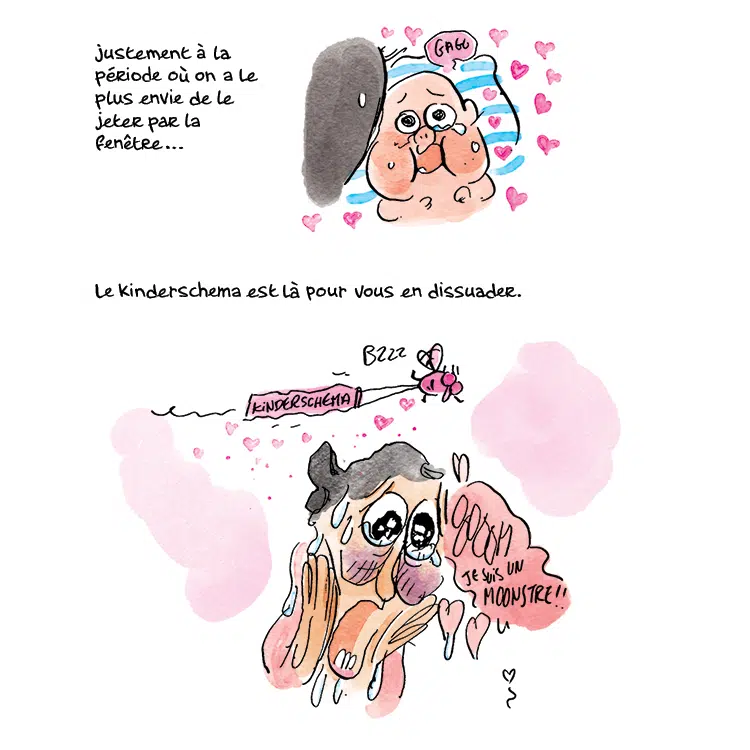 justement à la
période où on a le
plus envie de le
jeter par la
fenêtre...
GAGU
Le Kinderschema est là pour vous en dissuader.
BZZZ
KINDERSCHEMA
OOOHH
JE SUIS UN
MOONSTRE!!